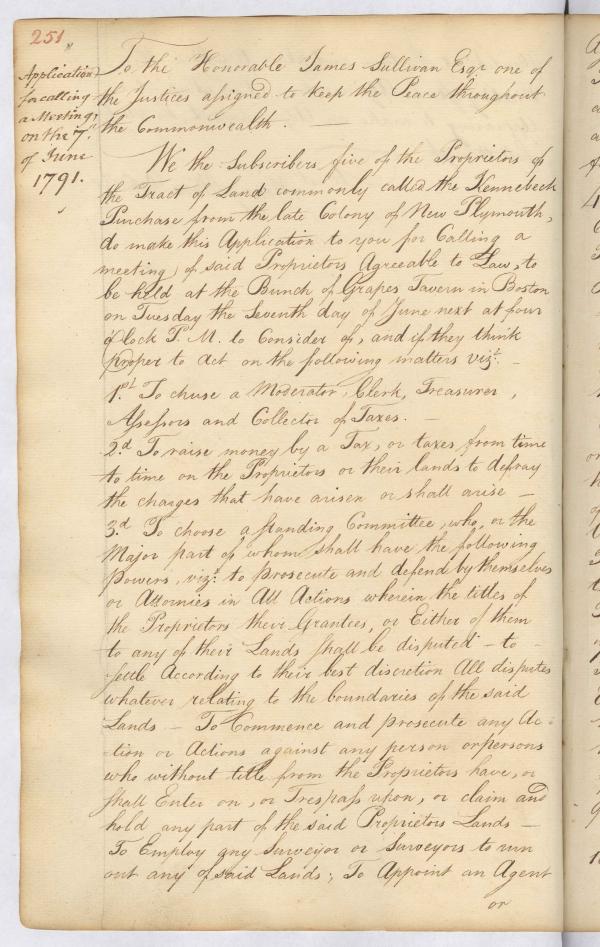 251
Application
for calling
a Meeting,
on the 7th
of June
1791.
To the Honorable James Sullivan Esqr one of
the Justices assigned to keep the Peace throughout
the Commonwealth. —
We the Subscribers five of the Proprietors of
the Tract of Land commonly called the Kennebeck
Purchase from the late Colony of New Plymouth,
do make this Application to you for Calling a
meeting of said Proprietors Agreeable to Law, to
be held at the Bunch of Grapes Tavern in Boston
on Tuesday the Seventh day of June next at four
oClock P. M. to Consider of, and if they think
proper to Act on the following matters vizt. —
1.st To chuse a Moderator, Clerk, Treasurer,
Assessors and Collector of Taxes. —
2.d To raise money by a Tax, or taxes, from time
to time on the Proprietors or their lands to defray
the charges that have arisen or shall arise —
3.d To choose a standing Committee, who, or the
Major part of whom shall have the following
Powers, vizt. to prosecute and defend by themselves
or Attornies in All Actions wherein the titles of
the Proprietors their Grantees, or Either of them
to any of their Lands shall be disputed — to —
settle According to their best discretion All disputes
whatever relating to the boundaries of the said
Lands — To Commence and prosecute any Ac-
-tion or Actions against any person or persons
who without title from the Proprietors have, or
shall Enter on, or Trespass upon, or claim and
hold any part of the said Proprietors Lands —
To Employ any Surveyor or Surveyors to run
out any of said Lands; To Appoint an Agent
or